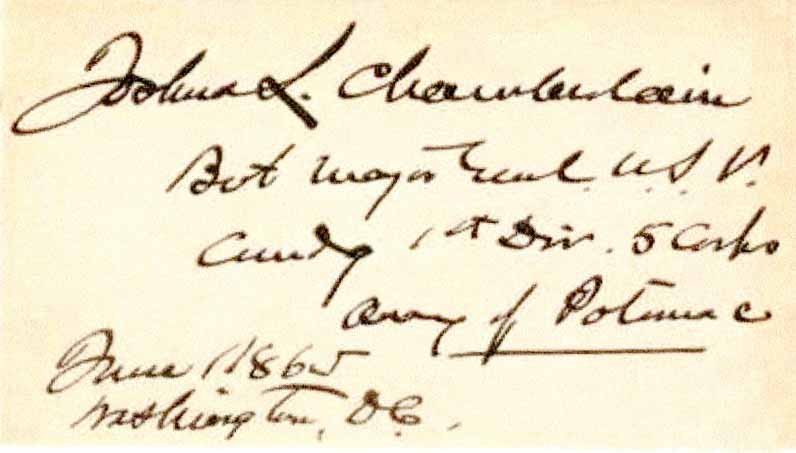 Joshua L. Chamberlain
Bvt Major Genl. U.S.V.
Comdg 1st Div. 5 Corps
Army of Potomac
June 1865
Washington, D.C.